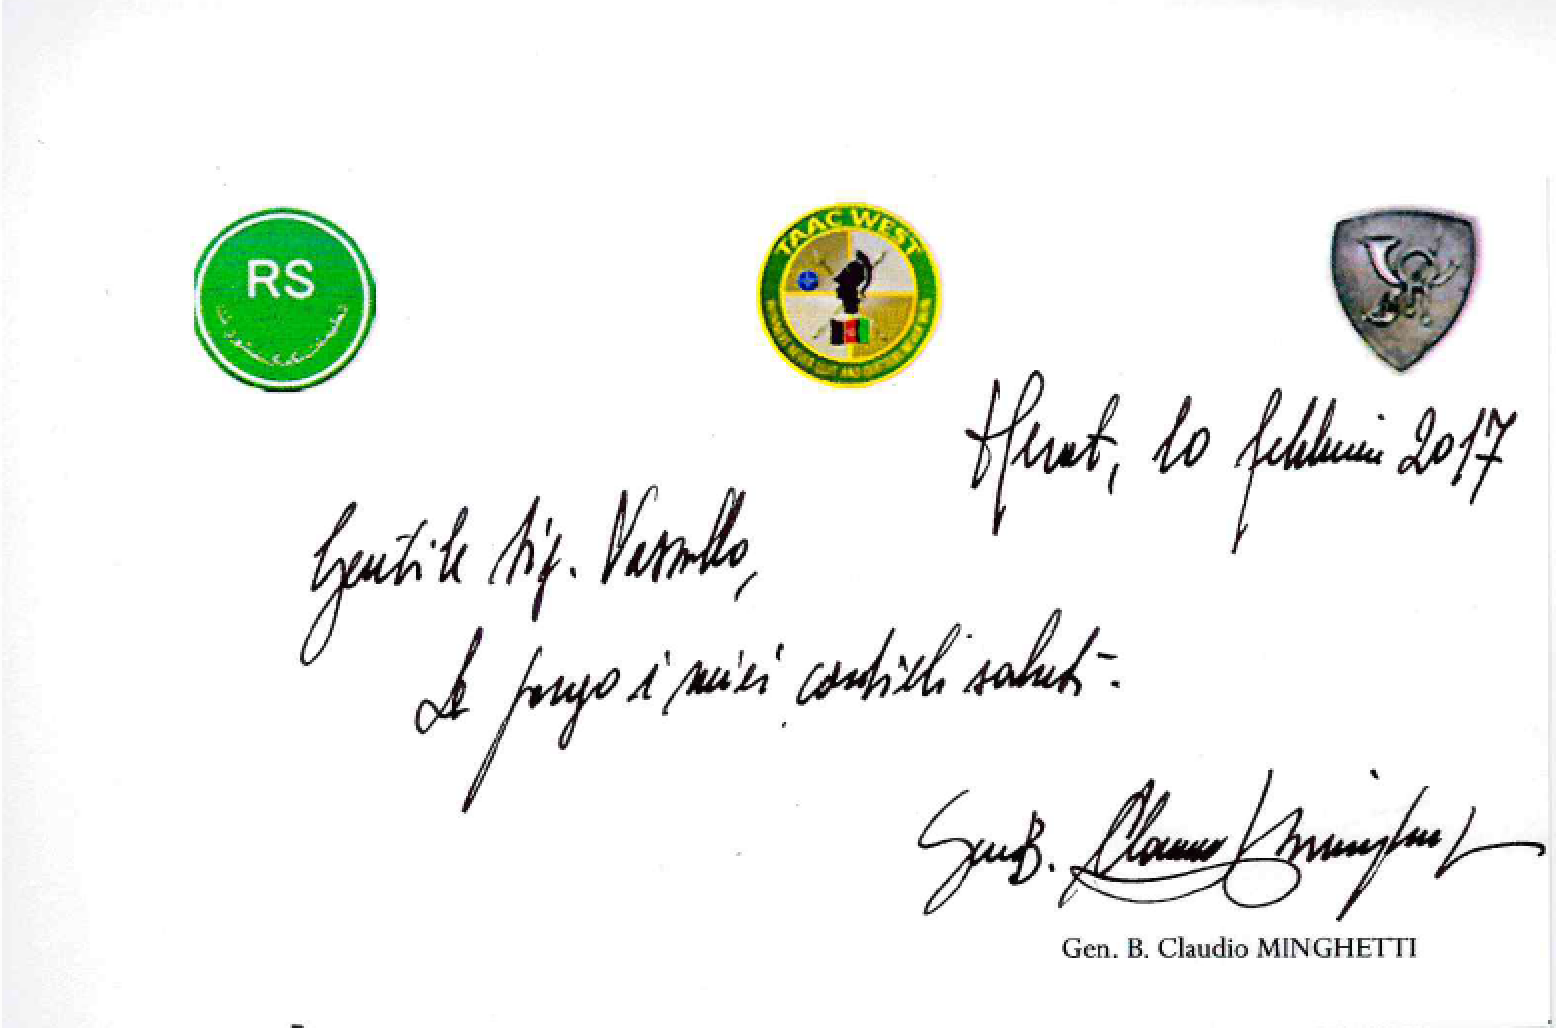 RS
TAAC WEST
Herat, 10 febbraio 2017
Gentile Sig. Vassallo,
Le porgo i miei cordiali saluti.
Gen. B. Claudio Minghetti
Gen. B. Claudio MINGHETTI